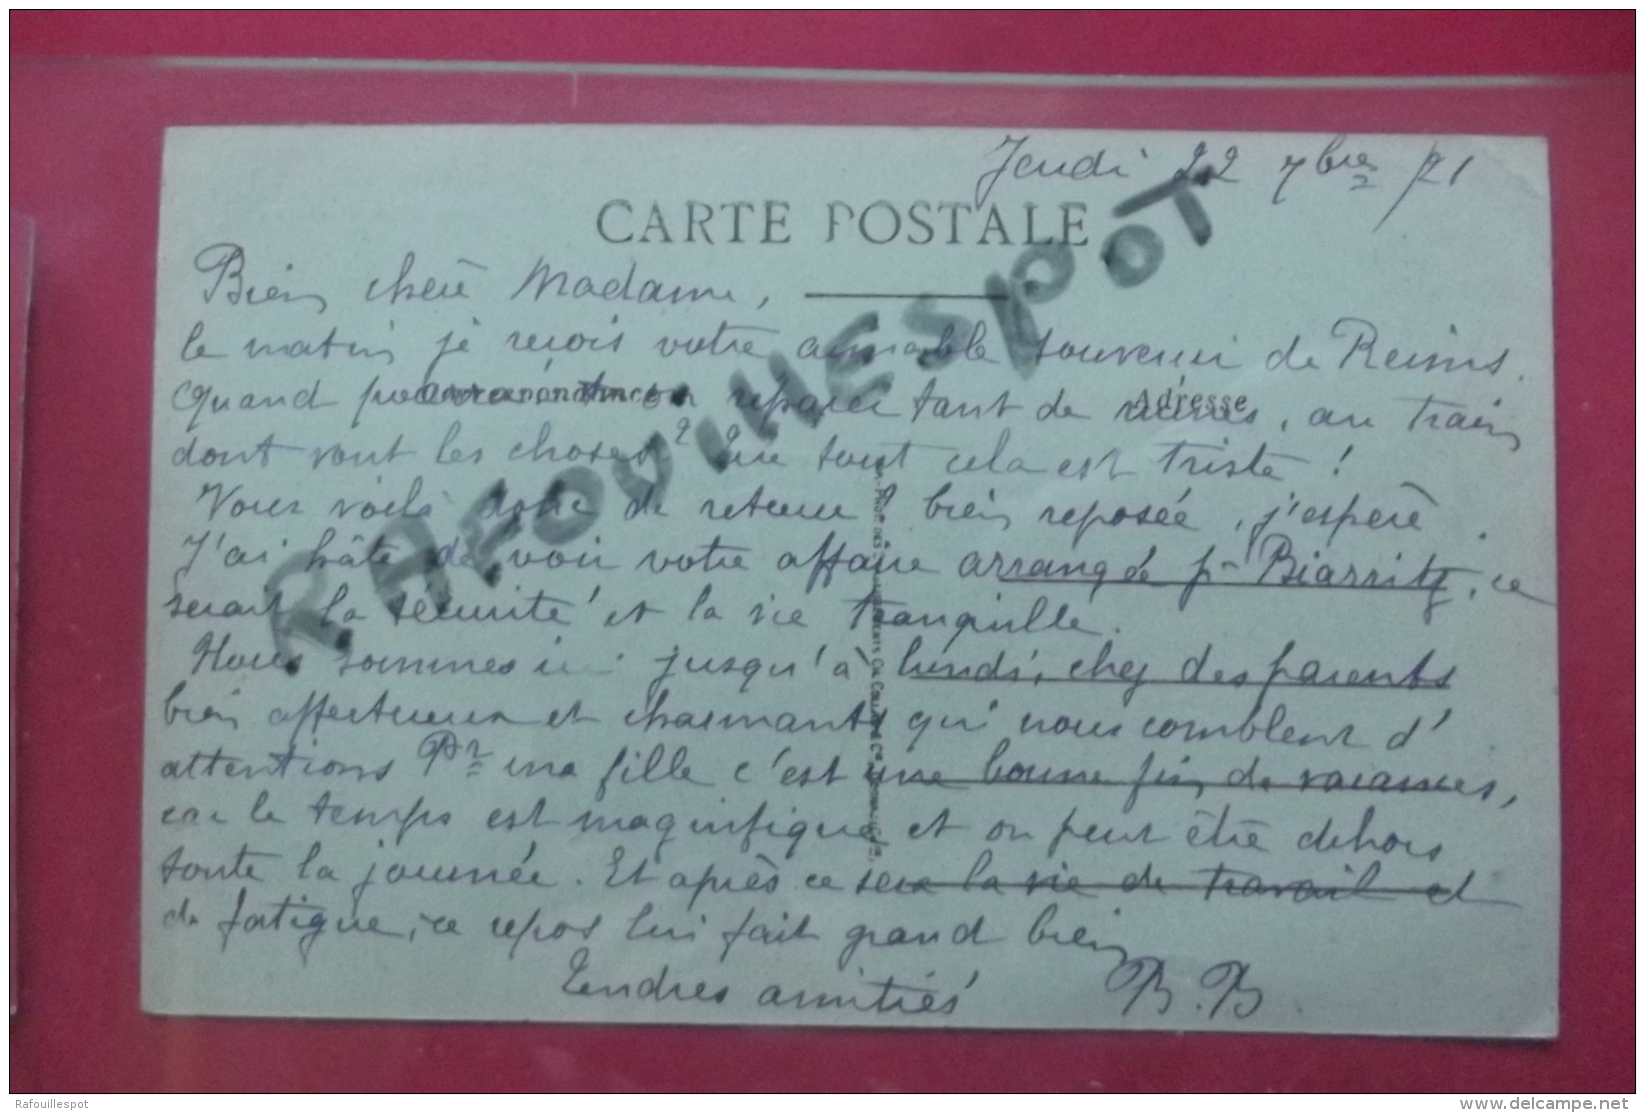 Jeudi 22 7bre 21
CARTE POSTALE
Bien chère Madame,
le matin je reçois votre aimable souvenir de Reims.
Quand pourra-t-on réparer tant de ruines, au train
Correspondance
Adresse
dont vont les choses? Que tout cela est triste!
Vous voilà donc de retour bien reposée, j'espère.
J'ai hâte de voir votre affaire arrangée pr Biarritz, ce
serait la sécurité et la vie tranquille.
Nous sommes ici jusqu'à lundi, chez des parents
bien affectueux et charmants qui nous comblent d'
attentions Pr ma fille c'est une bonne fin de vacances,
car le temps est magnifique et on peut être dehors
toute la journée. Et après ce sera la vie de travail et
de fatigue, ce repos lui fait grand bien
Tendres amitiés B.B
RAFOUILLESPOT
Rafouillespot
www.delcampe.net